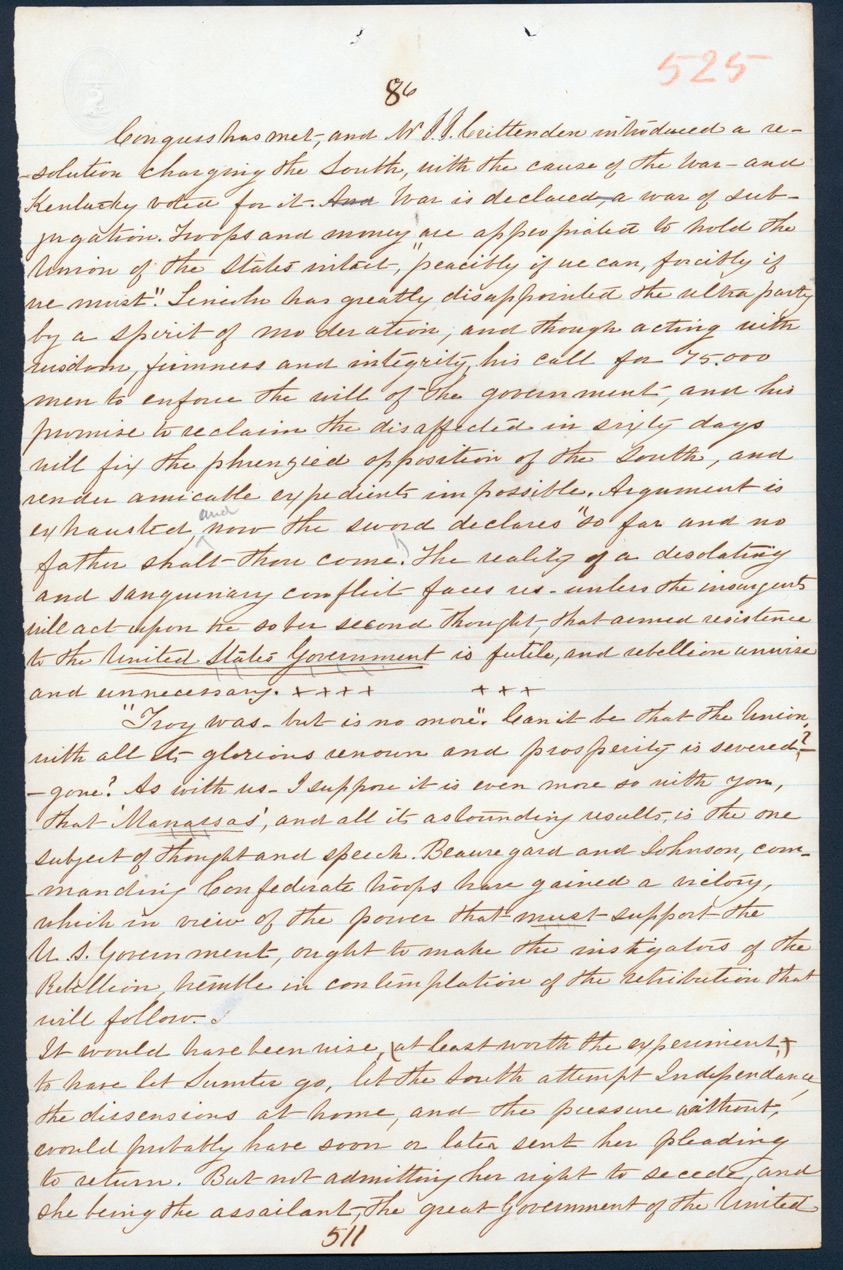 525
86
Congress has met, and Mr J. J. Crittenden introduced a re-
-solution charging the South, with the cause of the War - and
Kentucky voted for it. And War is declared, a war of sub-
jugation. Troops and money are appropriated to hold the
Union of the States intact, "peacibly if we can, forcibly if
we must". Lincoln has greatly disappointed the ultra party
by a spirit of moderation, and though acting with
wisdom, firmness and integrity, his call for 75.000
men to enforce the will of the government, and his
promise to reclaim the disaffected in sixty days
will fix the phrenzied opposition of the South, and
render amicable expedients impossible. Argument is
and
exhausted, now the sword declares "so far and no
father shalt thou come." The reality of a desolating
and sanguinary conflict faces us - unless the insurgents
will act upon the sober second thought, that armed resistence
to the United States Government is futile, and rebellion unwise
and unnecessary. ++++ +++
"Troy was - but is no more". Can it be that the Union,
with all its glorious renown and prosperity is severed?-
-gone? As with us - I suppose it is even more so with you,
that 'Manassas', and all its astounding results, is the one
subject of thought and speech. Beauregard and Johnson, com-
-manding Confederate troops have gained a victory,
which in view of the power that must support the
U. S. Government, ought to make the instigators of the
Rebellion, tremble in contemplation of the retribution that
will follow.
It would have been wise, (at least worth the experiment,)
to have let Sumter go, let the South attempt Independance,
the dissensions at home, and the pressure without,
would probably have soon or later sent her pleading
to return. But not admitting her right to secede, and
she being the assailant, the great Government of the United
511